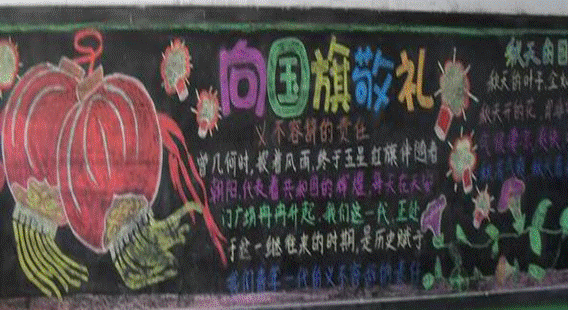 向国旗敬礼
义不容辞的责任
曾几何时,披着风雨,终于五星红旗伴随着
朝阳,代表着共和国的辉煌,每天在天安
门广场冉冉升起.我们这一代,正处
于这一继往来的时期,是历史赋于
我们青年一代的义不容辞的责任
秋天的
秋天的叶子,
秋天